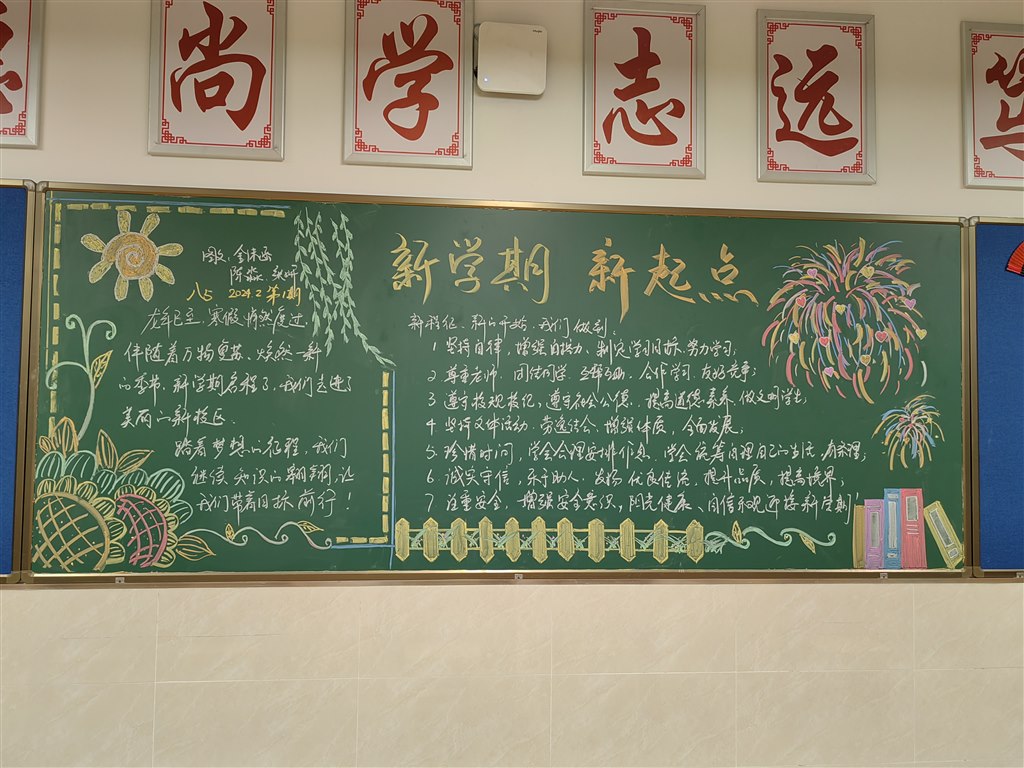 尚 学 志 远
新学期 新起点
八5 2024.2 第1期
龙年已至,寒假悄然度过,
伴随着万物复苏、焕然一新
的季节,新学期启程了,我们走进了
美丽的新校区。
踏着梦想的征程,我们
继续知识的翱翔,让
我们带着目标前行!
新程伦、新的开始,我们做到:
1 坚持自律,增强自控力、制定学习目标、努力学习;
2 尊重老师、团结同学、互帮互助、合作学习、友好竞争;
3 遵守校规校纪,遵守社会公德、提高道德素养、做文明学生;
4 坚持文体活动、劳逸结合、增强体质、全面发展;
5 珍惜时间、学会合理安排作息、学会统筹自理自己的生活、有条理;
6 诚实守信、乐于助人、发扬优良传统、提升品质、提高境界;
7 注重安全,增强安全意识,阳光健康、自信乐观迎接新学期!